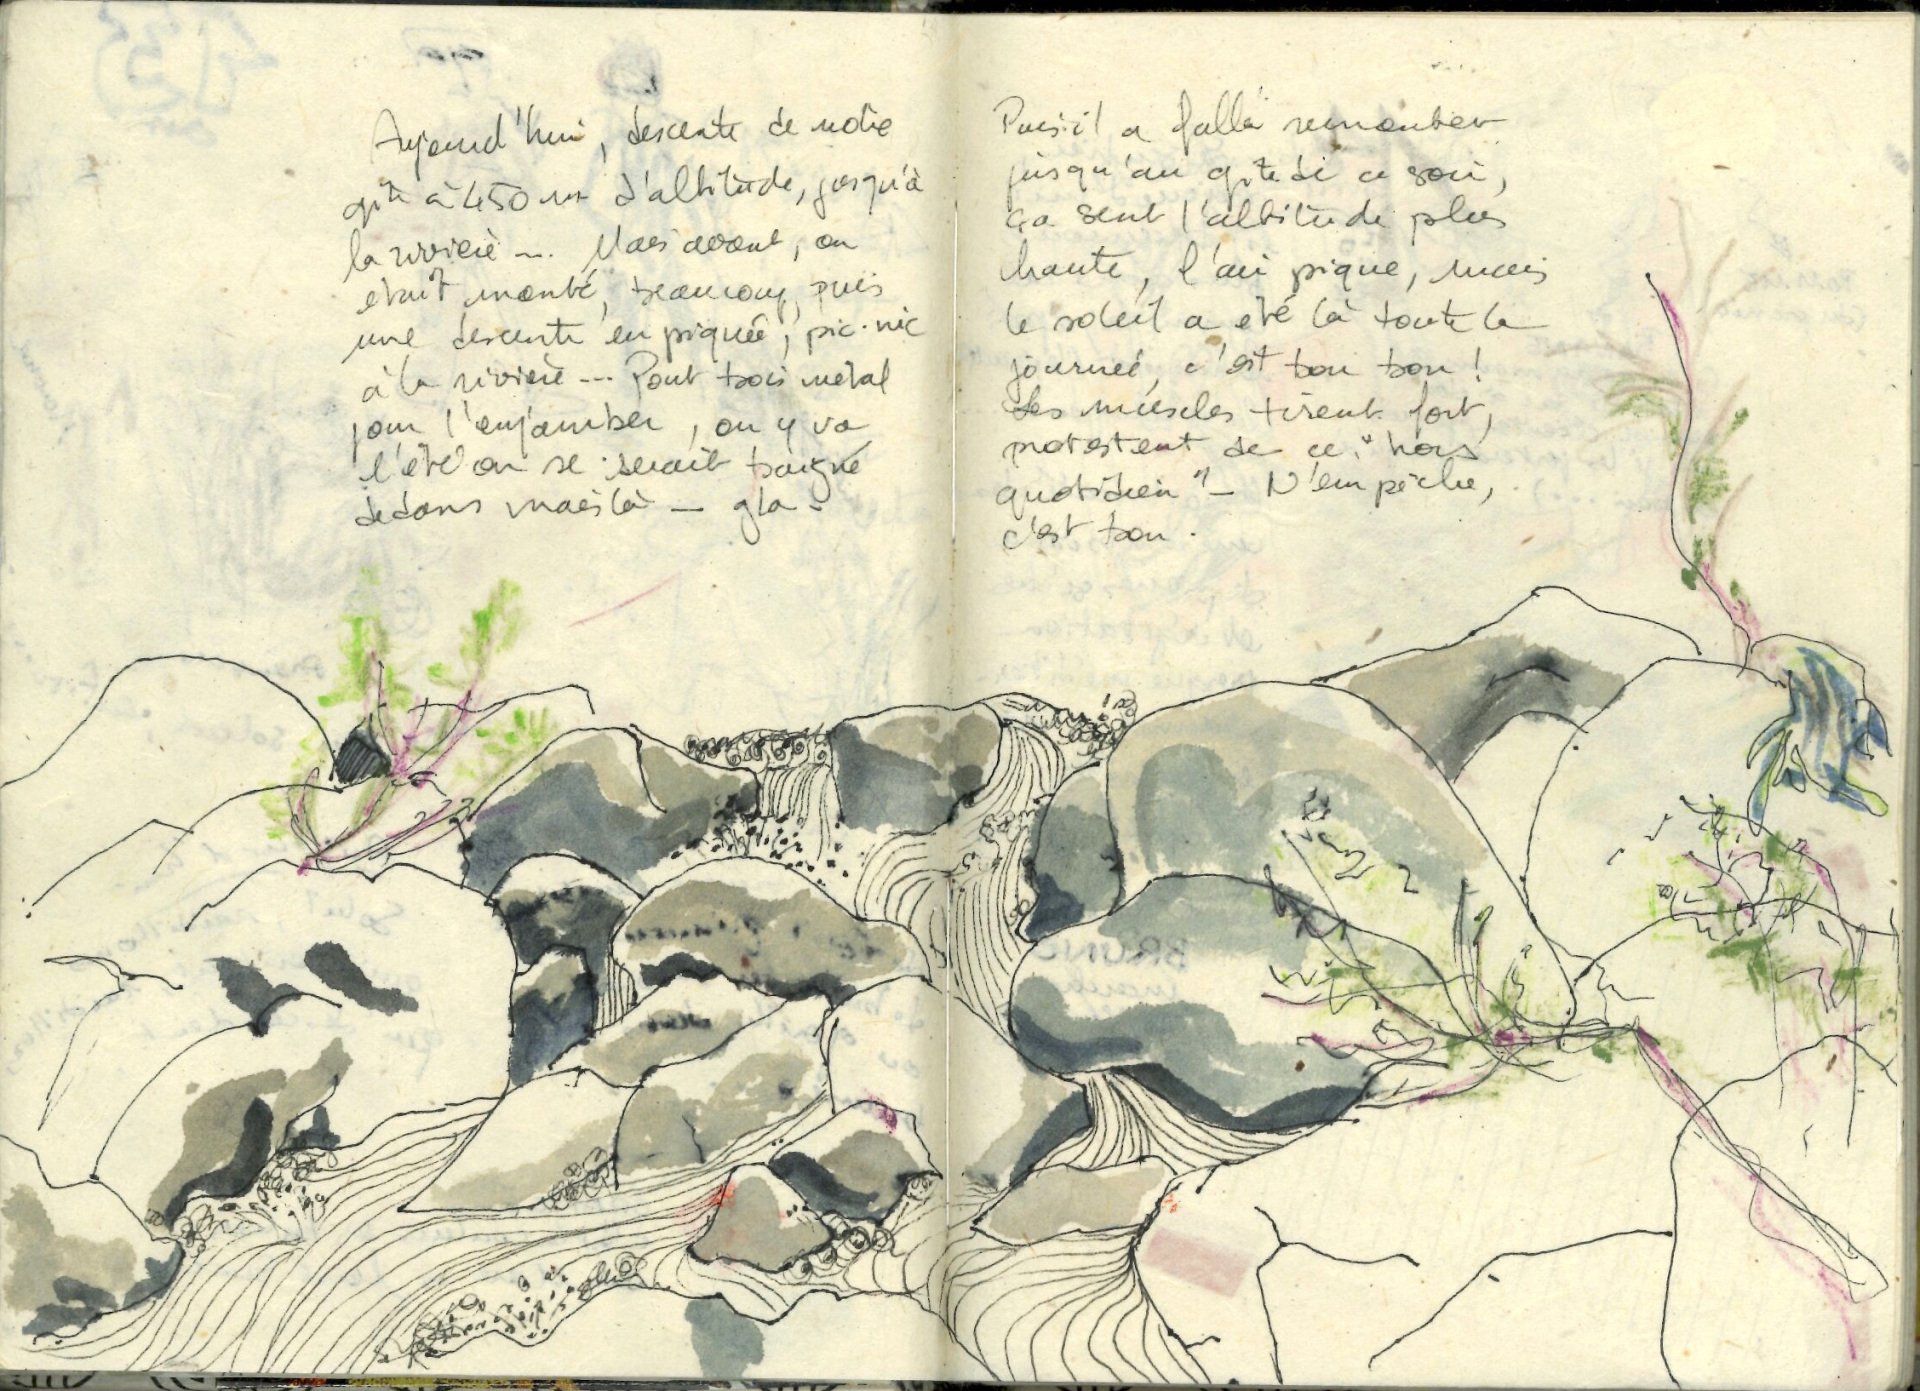 Aujourd'hui, descente de notre
gîte à 450 m d'altitude, jusqu'à
la rivière ... Mais avant, on
était monté, beaucoup, puis
une descente en piquée, pic-nic
à la rivière ... Pont bois métal
pour l'enjamber, on y va
l'été on se serait baigné
dedans mais là - gla -
Puis il a fallu remonter
jusqu'au gîte de ce soir,
ça sent l'altitude plus
haute, l'air pique, mais
le soleil a été là toute la
journée, c'est bon bon !
Les muscles tirent fort,
protestent de ce "hors
quotidien" - N'empêche,
c'est bon.